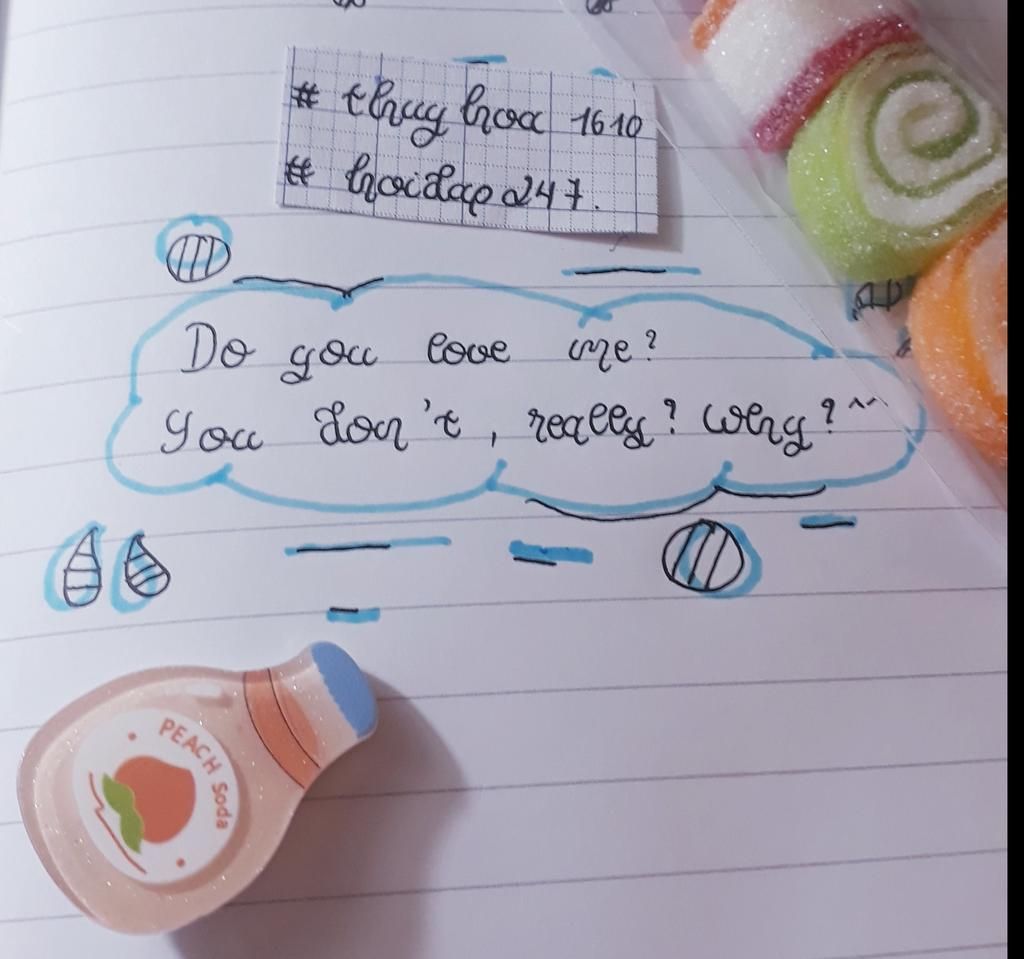 # thuy hoa 1610
# hoidap247.
Do you love me?
You don't, really? Why? ^^
PEACH Soda